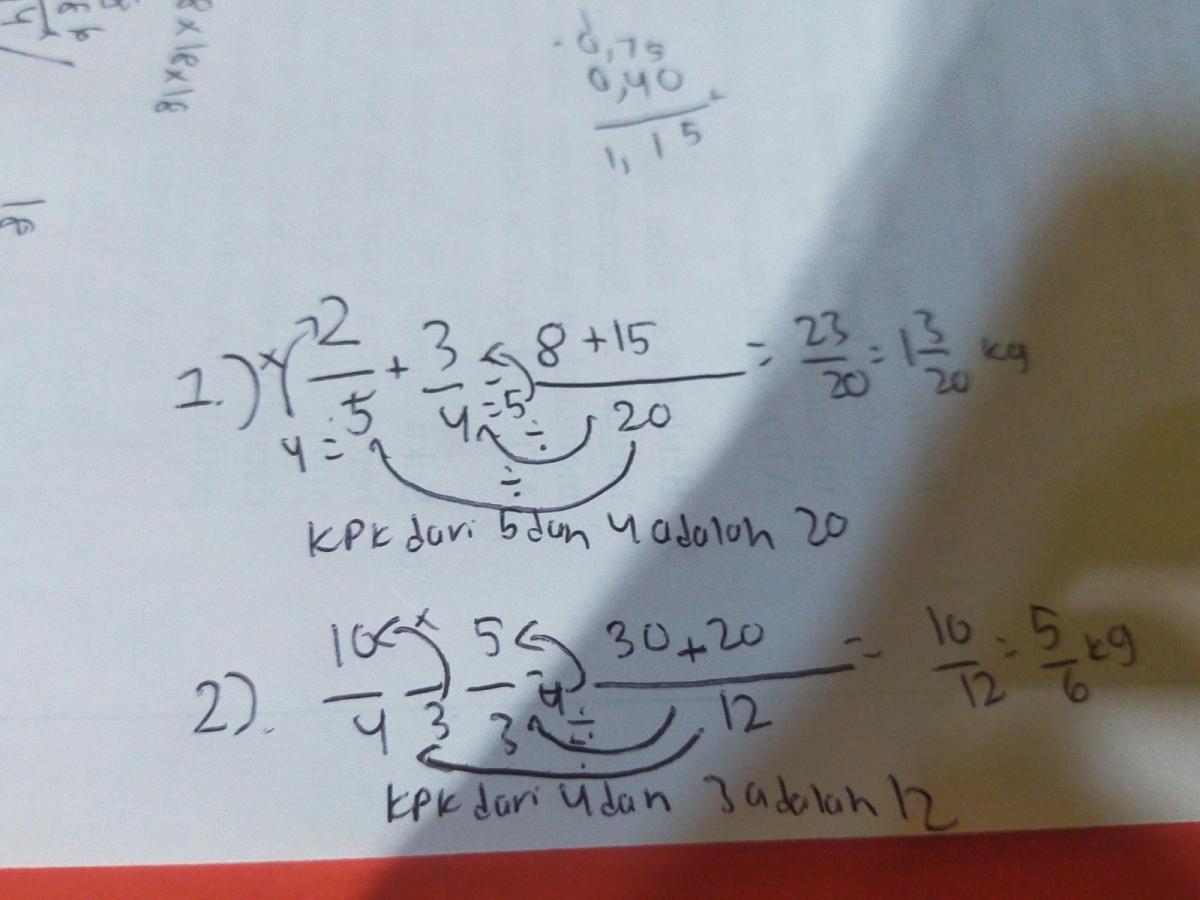 0,75
0,40
+
1,15
8x18x18
18
1.) 2/5 + 3/4 = (8+15)/20 = 23/20 = 1 3/20 kg
KPK dari 5 dan 4 adalah 20
2). 10/4 - 5/3 = (30+20)/12 = 10/12 = 5/6 kg
KPK dari 4 dan 3 adalah 12